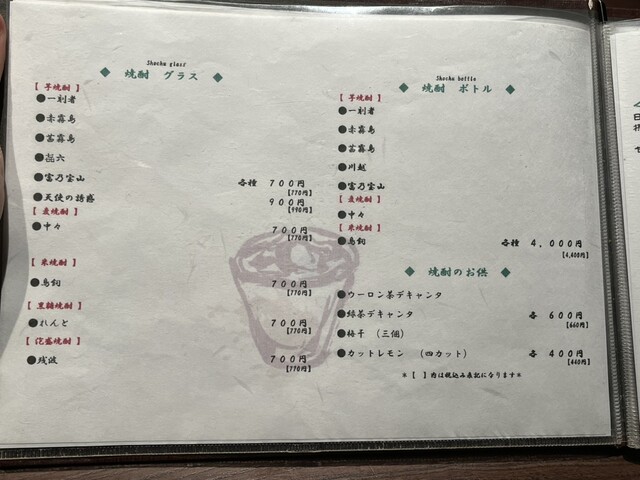 Shochu glass
◆ 焼酎 グラス ◆
【芋焼酎】
●一刻者
●赤霧島
●茜霧島
●㐂六
●富乃宝山 各種 700円
【770円】
●天使の誘惑 900円
【990円】
【麦焼酎】
●中々 700円
【770円】
【米焼酎】
●鳥飼 700円
【770円】
【黒糖焼酎】
●れんと 700円
【770円】
【泡盛焼酎】
●残波 700円
【770円】
Shochu bottle
◆ 焼酎 ボトル ◆
【芋焼酎】
●一刻者
●赤霧島
●茜霧島
●川越
●富乃宝山
【麦焼酎】
●中々
【米焼酎】
●鳥飼 各種 4,000円
【4,400円】
◆ 焼酎のお供 ◆
●ウーロン茶デキャンタ
●緑茶デキャンタ 各 600円
【660円】
●梅干 (三個)
●カットレモン (四カット) 各 400円
【440円】
*【 】内は税込み表記になります*